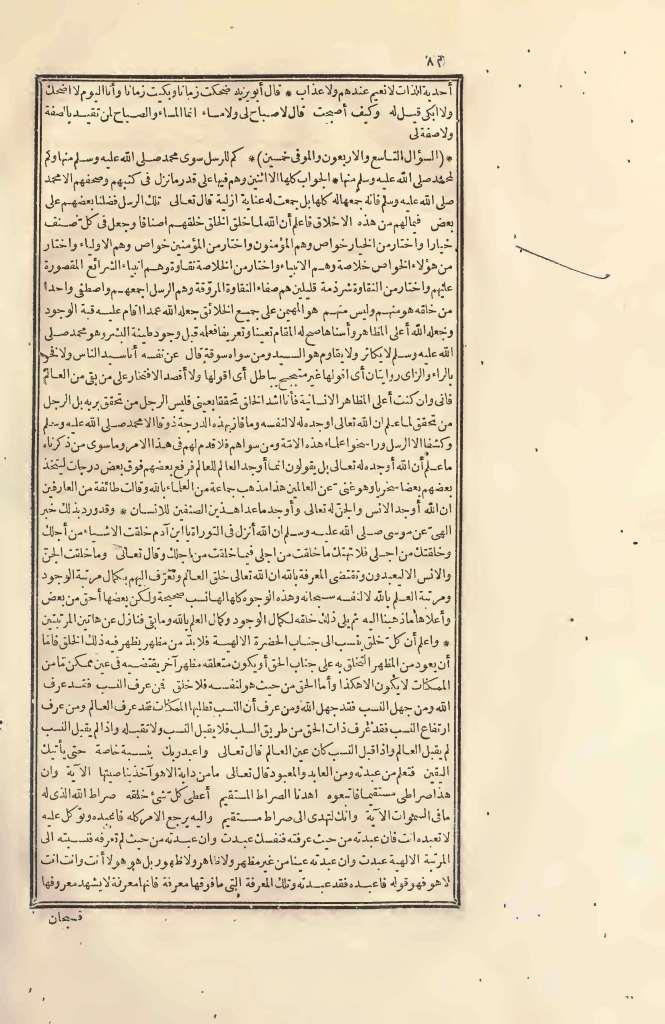 ٨٣
أحدية الذات لا نعيم عندهم ولا عذاب * قال أبو يزيد ضحكت زمانا وبكيت زمانا وأنا اليوم لا أضحك
ولا ابكى وقيل له وكيف أصبحت قال لا صباح لى ولا مساء انما المساء والصباح لمن تقيد بالصفة
ولا صفة لى
* (السؤال التاسع والاربعون والموفى خمسين) * كم للرسل سوى محمد صلى الله عليه وسلم منها وكم
لمحمد صلى الله عليه وسلم منها * الجواب كلها الا اثنين وهم فيها على قدر ما نزل فى كتبهم وصحفهم الا محمد
صلى الله عليه وسلم فانه جمعها له كلها بل جمعت له عناية ازلية قال تعالى تلك الرسل فضلنا بعضهم على
بعض فيمالهم من هذه الاخلاق فاعلم أن الله لما خلق الخلق خلقهم اصنافا وجعل فى كل صنف
خيارا واختار من الخيار خواص وهم المؤمنون واختار من المؤمنين خواص وهم الاولياء واختار
من هؤلاء الخواص خلاصة وهم الانبياء واختار من الخلاصة نقاوة وهم انبياء الشرائع المقصورة
عليهم واختار من النقاوة شرذمة قليلين هم صفاء النقاوة المروّقة وهم الرسل اجمعهم واصطفى واحدا
من خلقه هو منهم وليس منهم هو المهيمن على جميع الخلائق جعله الله عمدا اقام عليه قبة الوجود
وجعله الله أعلى المظاهر وأسناها صح له المقام تعيينا وتعريفا فعلمه قبل وجود طينة البشر وهو محمد صلى
الله عليه وسلم لا يكاثر ولا يقاوم هو السيد ومن سواه سوقة قال عن نفسه أنا سيد الناس ولا فخر
بالراء والزاى روايتان أى اقولها غير متبجح بباطل أى اقولها ولا أقصد الافتخار على من بقى من العالم
فانى وان كنت أعلى المظاهر الانسانية فأنا اشد الخلق تحققا بعينى فليس الرجل من تحقق بربه بل الرجل
من تحقق لما علم ان الله تعالى اوجده له لا لنفسه وما فاز بهذه الدرجة ذوقا الا محمد صلى الله عليه وسلم
وكشفا الا الرسل وراسخوا علماء هذه الامّة ومن سواهم فلا قدم لهم فى هذا الامر وما سوى من ذكرناه
ما علم أن الله أوجده له تعالى بل يقولون انما أوجد العالم للعالم فرفع بعضهم فوق بعض درجات ليتخذ
بعضهم بعضا سخريا وهو غنى عن العالمين هذا مذهب جماعة من العلماء بالله وقالت طائفة من العارفين
ان الله أوجد الانس والجن له تعالى وأوجد ما عدا هذين الصنفين للانسان * وقد ورد بذلك خبر
الهىّ عن موسى صلى الله عليه وسلم ان الله أنزل فى التوراة يا ابن آدم خلقت الاشياء من أجلك
وخلقتك من اجلى فلا تهتك ما خلقت من اجلى فيما خلقت من اجلك وقال تعالى وما خلقت الجن
والانس الا ليعبدون وتقتضى المعرفة بالله ان الله تعالى خلق العالم وتعرّف اليهم بكمال مرتبة الوجود
ومرتبة العلم بالله لا لنفسه سبحانه وهذه الوجوه كلها لها نسب صحيحة ولكن بعضها أحق من بعض
وأعلاها ما ذهبنا اليه ثم يلى ذلك خلقه لكمال الوجود وكمال العلم بالله وما بقى فنازل عن هاتين المرتبتين
* واعلم أن كل خلق ينسب الى جناب الحضرة الالهية فلا بدّ من مظهر يظهر فيه ذلك الخلق فاما
أن يعود من المظهر التخلق به على جناب الحق أو يكون متعلقه مظهر آخر يقتضيه فى عين ممكن تما من
الممكنات لا يكون الا هكذا وأما الحق من حيث هو لنفسه فلا خلق فمن عرف النسب فقد عرف
الله ومن جهل النسب فقد جهل الله ومن عرف أن النسب تطلبها الممكنات فقد عرف العالم ومن عرف
ارتفاع النسب فقد عرف ذات الحق من طريق السلب فلا يقبل النسب ولا تقبله واذا لم يقبل النسب
لم يقبل العالم واذا قبل النسب كان عين العالم قال تعالى واعبد ربك بنسبة خاصة حتى يأتيك
اليقين فتعلم من عبدته ومن العابد والمعبود قال تعالى ما من دابة الا هو آخذ بناصيتها الآية وان
هذا صراطى مستقيما فاتبعوه اهدنا الصراط المستقيم أعطى كل شئ خلقه صراط الله الذى له
ما فى السموات الآية وانك لتهدى الى صراط مستقيم واليه يرجع الامر كله فاعبده وتوكل عليه
لا تعبده انت فان عبدته من حيث عرفته فنفسك عبدت وان عبدته من حيث لم تعرفه فنسبته الى
المرتبة الالهية عبدت وان عبدته عينا من غير مظهر ولا ظاهر ولا ظهور بل هو هو لا أنت وانت انت
لا هو فهو قوله فاعبده فقد عبدته وتلك المعرفة التى ما فوقها معرفة فانها معرفة لا يشهد معروفها
فسبحان